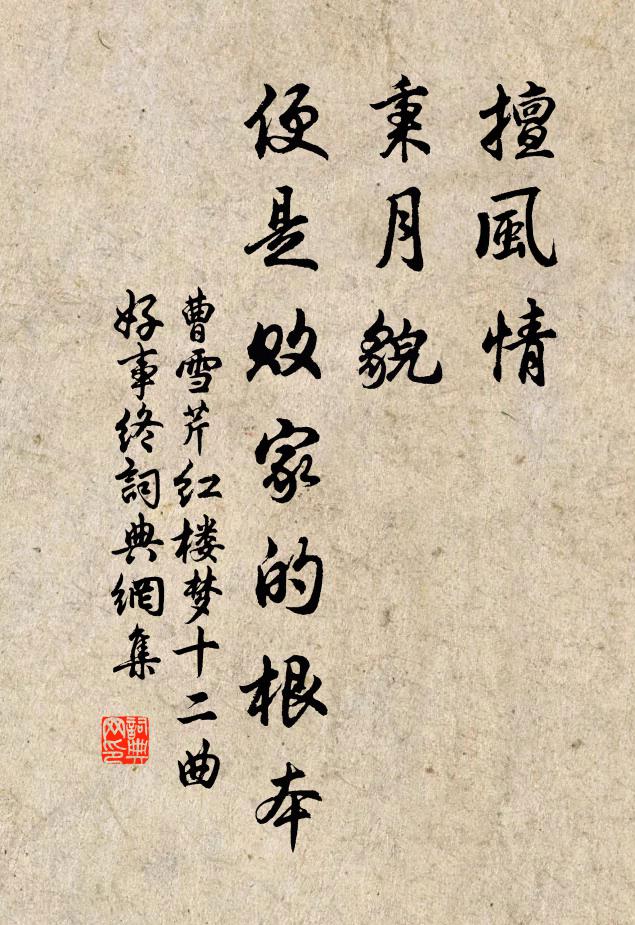 擅風情
秉月貌
便是败家的根本
曹雪芹红楼梦十二曲
好事终詞典網集
詞典网印